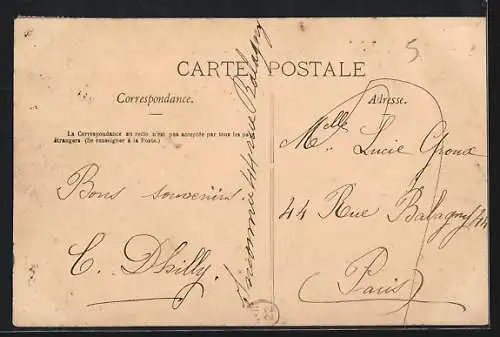 5
CARTE POSTALE
Correspondance.
Adresse.
La Correspondance au recto n'est pas acceptée par tous les pays
étrangers. (Se renseigner à la Poste.)
Bons souvenirs
C. Dhilly.
Inconnu 44 rue Balagny
Melle Lucie Groux
44 Rue Balagny 44
Paris
22